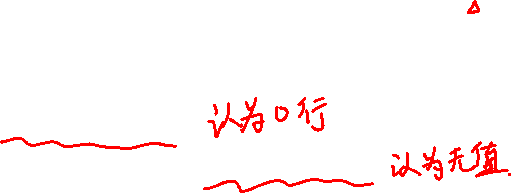 认为0行
认为无值.